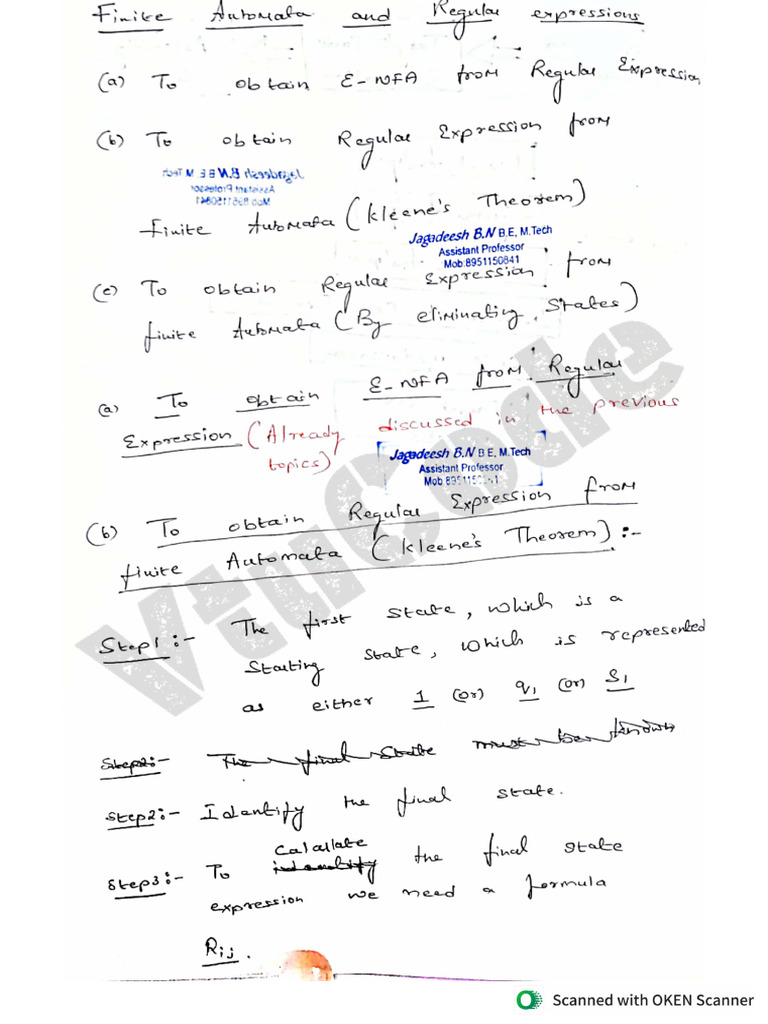 Finite Automata and Regular expressions
(a) To obtain ε-NFA from Regular Expression
(b) To obtain Regular Expression from
Jagadeesh B.N B.E, M.Tech
Assistant Professor
Mob:8951150841
Finite Automata (Kleene's Theorem)
Jagadeesh B.N B.E, M.Tech
Assistant Professor
Mob:8951150841
(c) To obtain Regular Expression from
finite Automata (By eliminating States)
(a) To obtain ε-NFA from Regular
Expression (Already discussed in the previous
topics)
Jagadeesh B.N B.E, M.Tech
Assistant Professor
(b) To obtain Regular Expression from
finite Automata (Kleene's Theorem) :-
Step1 :- The first state, which is a
starting state, which is represented
as either 1 (or) q1 (or) S1
Step2:- The final state must be known
Step2:- Identify the final state.
Step3:- To Calculate indentify the final state
expression we need a formula
Rij.
VtuCode
Scanned with OKEN Scanner